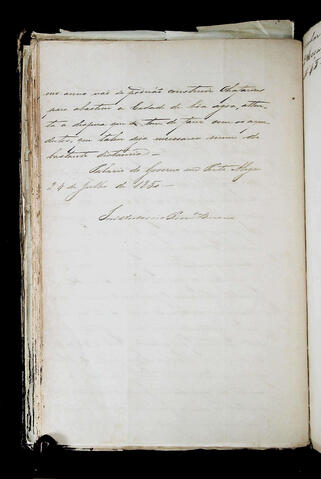 mo anno não se poderão construir Chafarizes
para abastecer a Cidade de boa agua, atten-
ta a despeza que se tem de fazer com os aque-
ductos, que talvez seja necessario virem de
bastante distancia.
Palacio do Governo em Porto Alegre
24 de Julho de 18